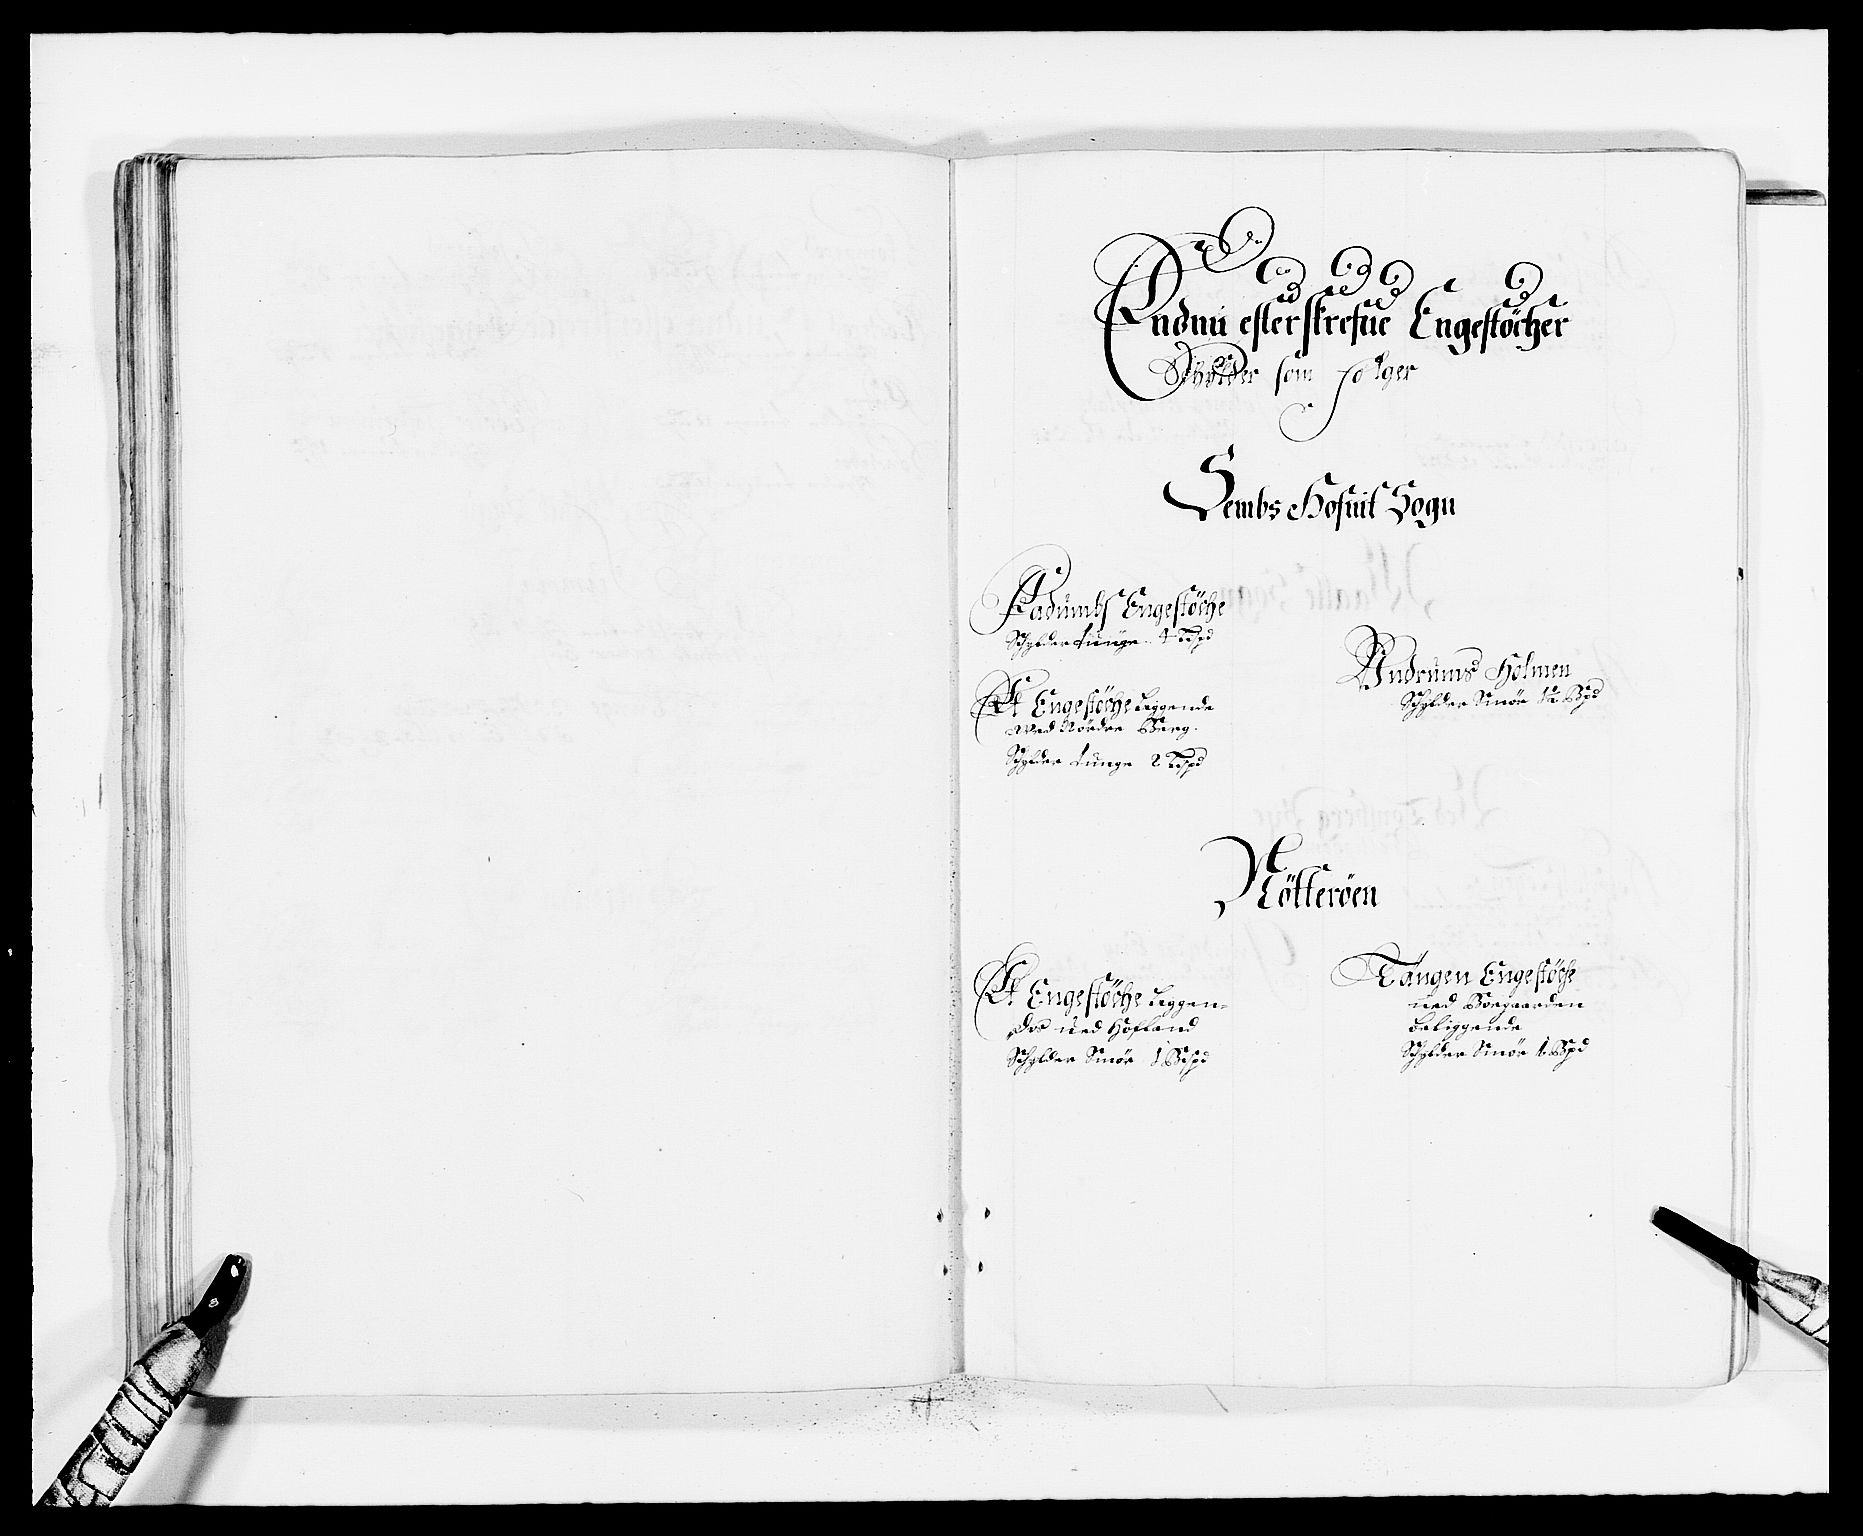 Endnu efterskrefne Engestöcher
Schylder som følger
Sembs Hofuit Sogn
Radumbs Engestöche
Schylder tunge 4 Lispd
Et Engestöche Liggende
wed Nördre Berg.
Schylder tunge 2 Lispd
Undrums Holmen
Schylder Smör 1½ Bpd
Nötteröen
Et Engestöche Liggen-
de ued Hofland
Schylder Smör 1 Bispd
Tangen Engestöche
ued Borgaarden
beliggende
Schylder Smör 1 Bpd